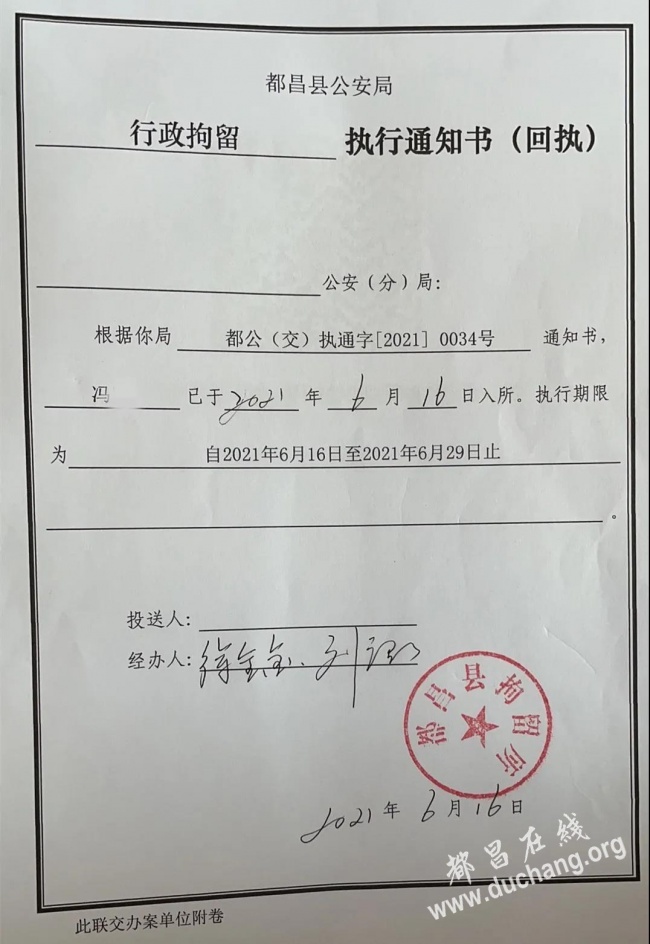 都昌县公安局
行政拘留 执行通知书（回执）
公安（分）局：
根据你局 都公（交）执通字[2021] 0034号 通知书，
冯 已于 2021 年 6 月 16 日入所。执行期限
为 自2021年6月16日至2021年6月29日止
。
投送人：
经办人：
都昌县拘留所
2021年 6月16日
都昌在线
www.duchang.org
此联交办案单位附卷